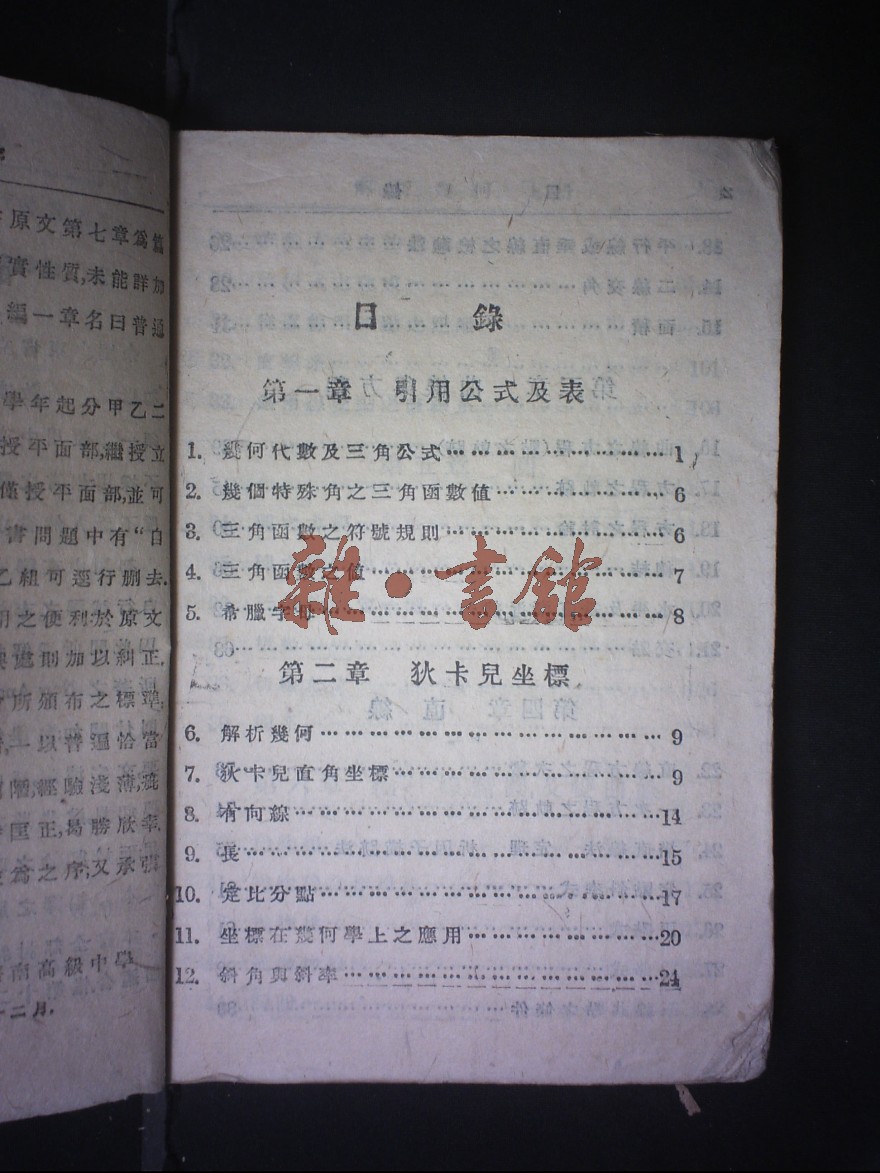 原文第七章為篇
實性質,未能詳加
編一章名曰普通
學年起分甲乙二
授平面部,繼授立
僅授平面部,並可
書問題中有“自
乙組可逕行刪去.
明之便利於原文
則加以糾正.
所頒布之標準,
一以普通恰當
經驗淺薄,疵
匡正,曷勝欣幸.
為之序,又承張
南高級中學
十二月.
目 錄
第一章 引用公式及表
1. 幾何代數及三角公式 …………………… 1
2. 幾個特殊角之三角函數值 …………………… 6
3. 三角函數之符號規則 …………………… 6
4. 三角函數之值 …………………… 7
5. 希臘字母 …………………… 8
第二章 狄卡兒坐標
6. 解析幾何 …………………… 9
7. 狄卡兒直角坐標 …………………… 9
8. 有向線 …………………… 14
9. 長 …………………… 15
10. 定比分點 …………………… 17
11. 坐標在幾何學上之應用 …………………… 20
12. 斜角與斜率 …………………… 24
雜·書館